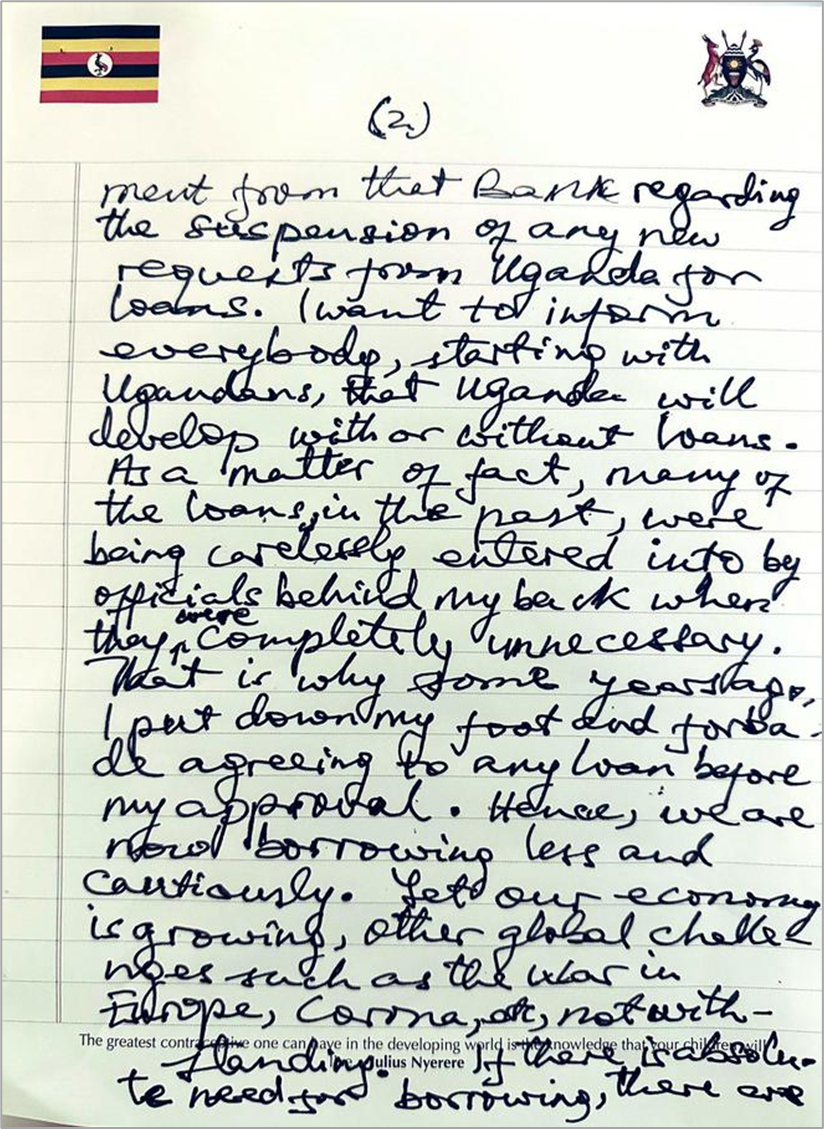 (2.)
ment from that Bank regarding
the suspension of any new
requests from Uganda for
loans. I want to inform
everybody, starting with
Ugandans, that Uganda will
develop with or without loans.
As a matter of fact, many of
the loans, in the past, were
being carelessly entered into by
officials behind my back when
they were completely unnecessary.
That is why some years ago,
I put down my foot and forba-
de agreeing to any loan before
my approval. Hence, we are
now borrowing less and
cautiously. Yet our economy
is growing, other global challe-
nges such as the war in
Europe, Corona, etc, notwith-
The greatest contraceptive one can have in the developing world is the knowledge that your children will
standing. If there is absolu-
Julius Nyerere
te need for borrowing, there are